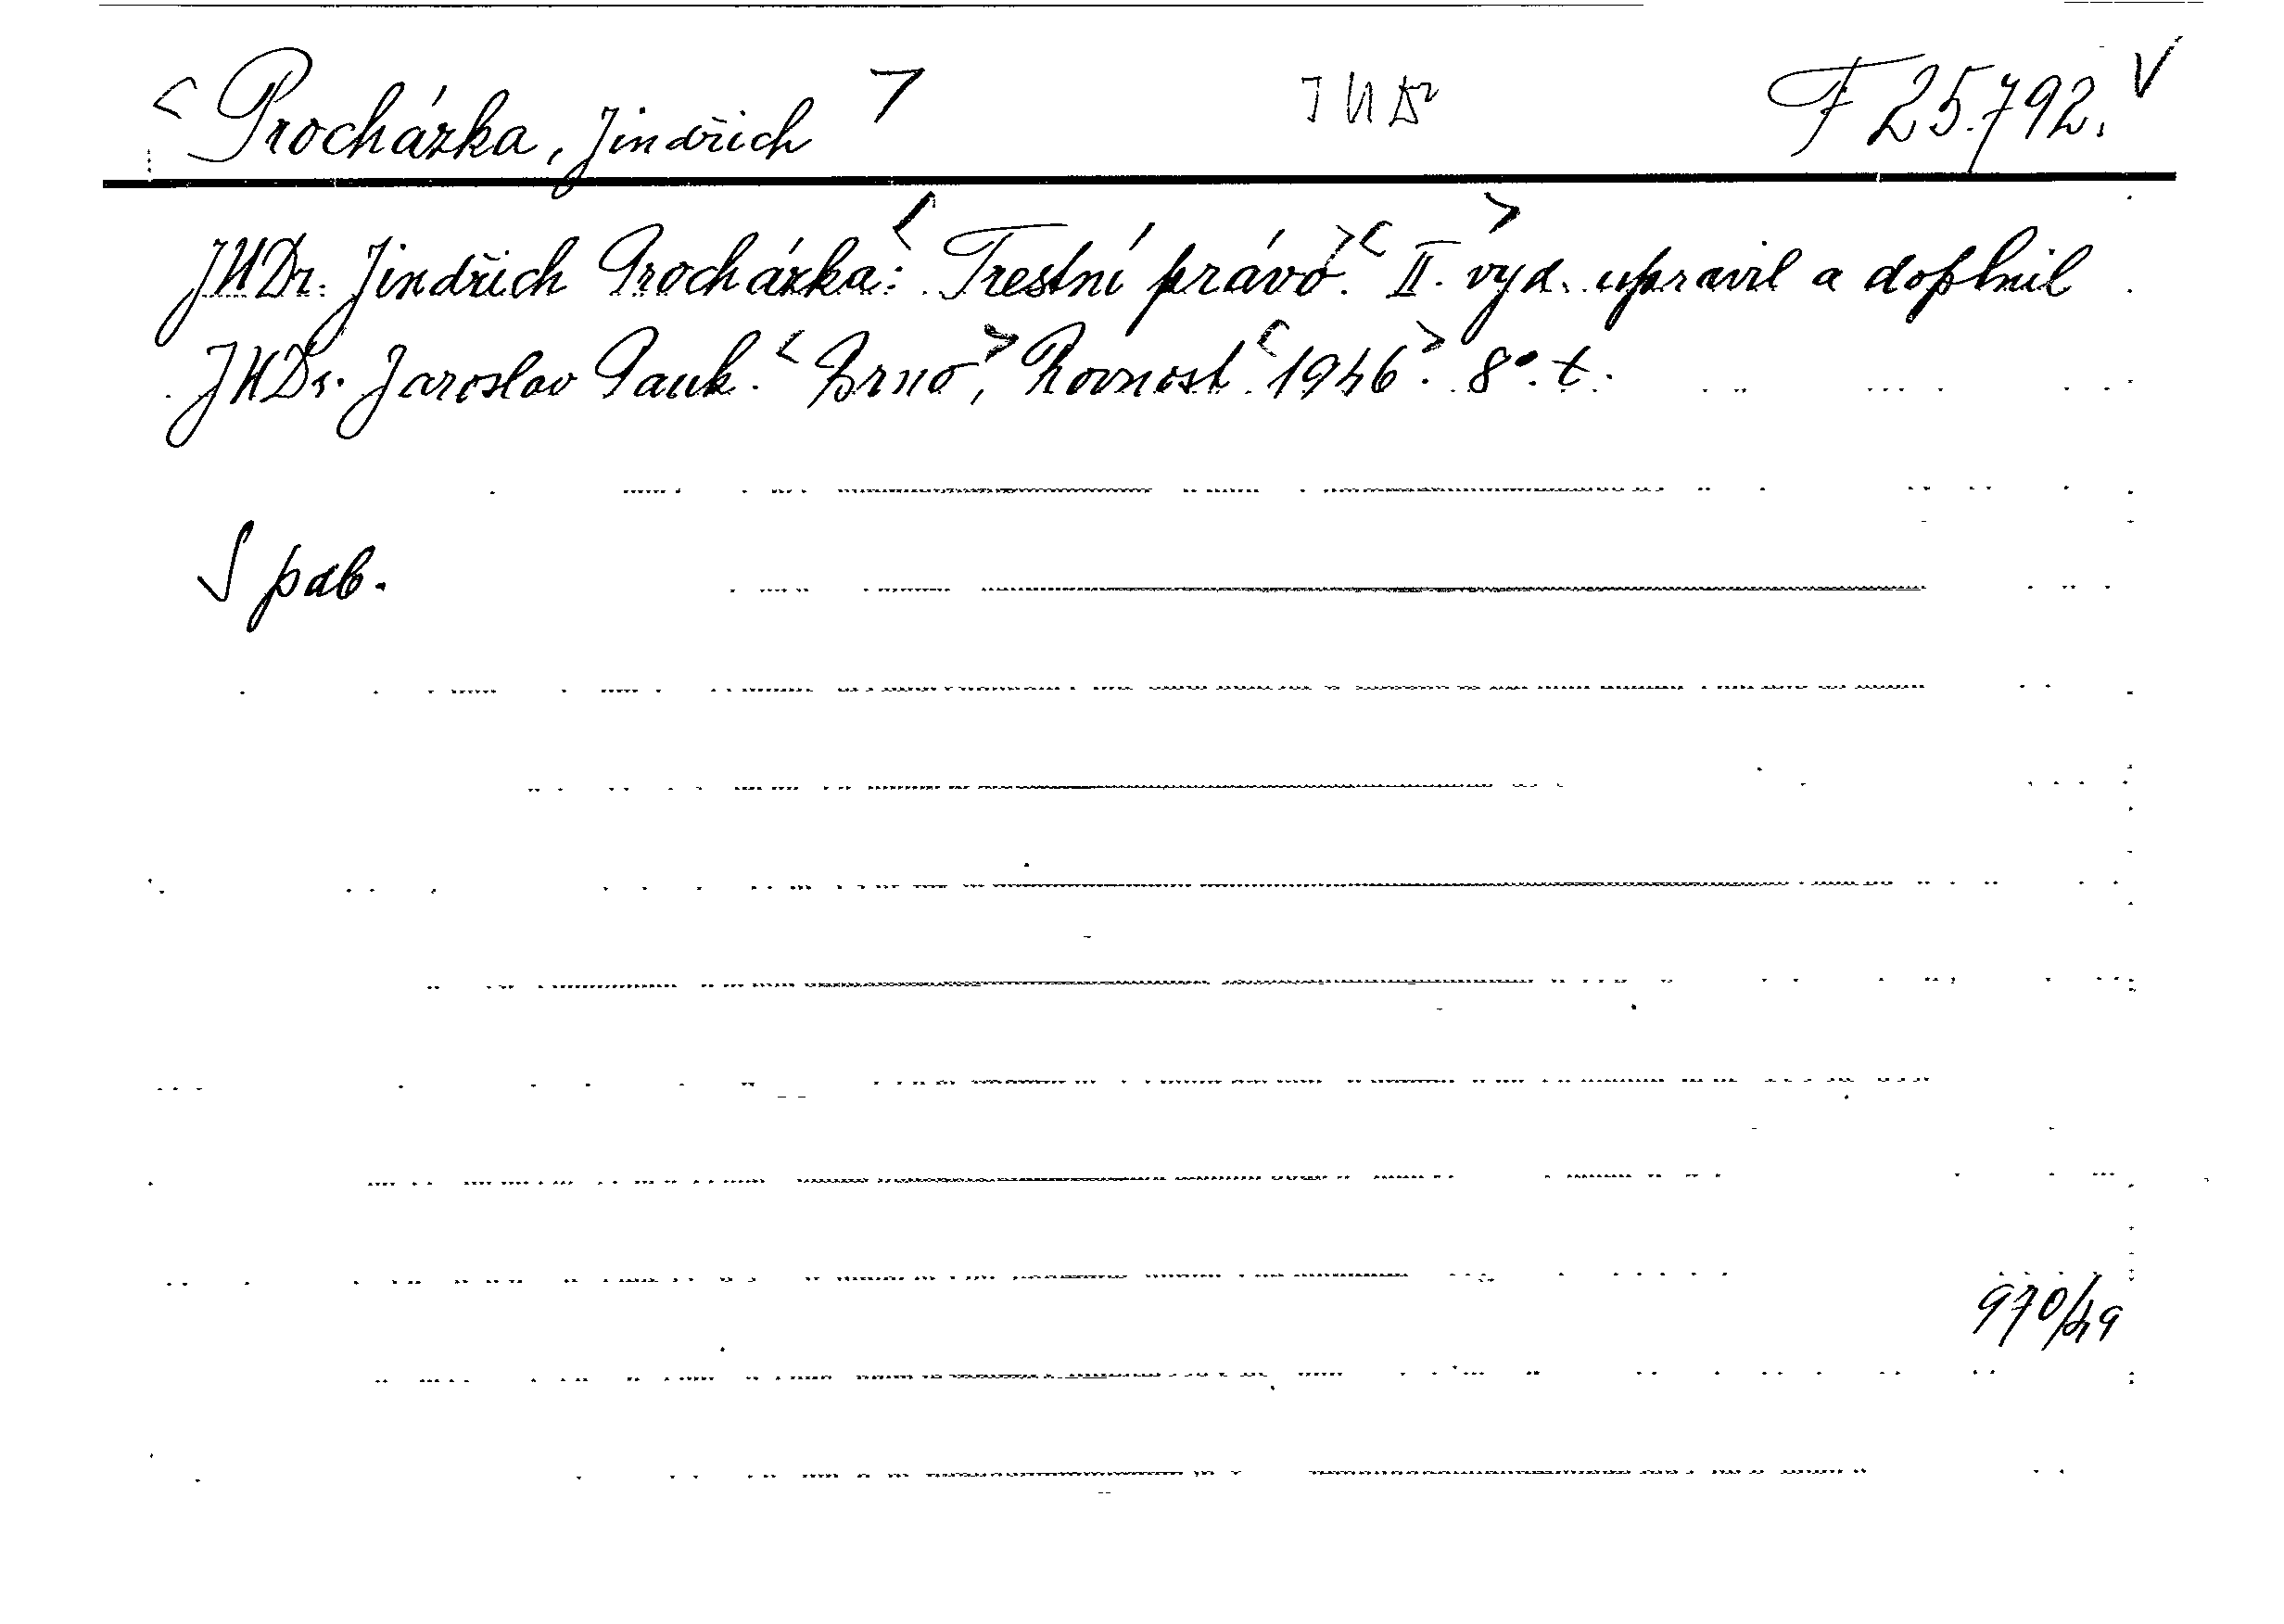 < Procházka, Jindřich > JUDr F 25.792. V
JUDr. Jindřich Procházka: <Trestní právo.> <II. vyd.> upravil a doplnil
JUDr. Jaroslav Pauk. <Brno>, Rovnost <1946>. 8°. t.
S pab.
970/49